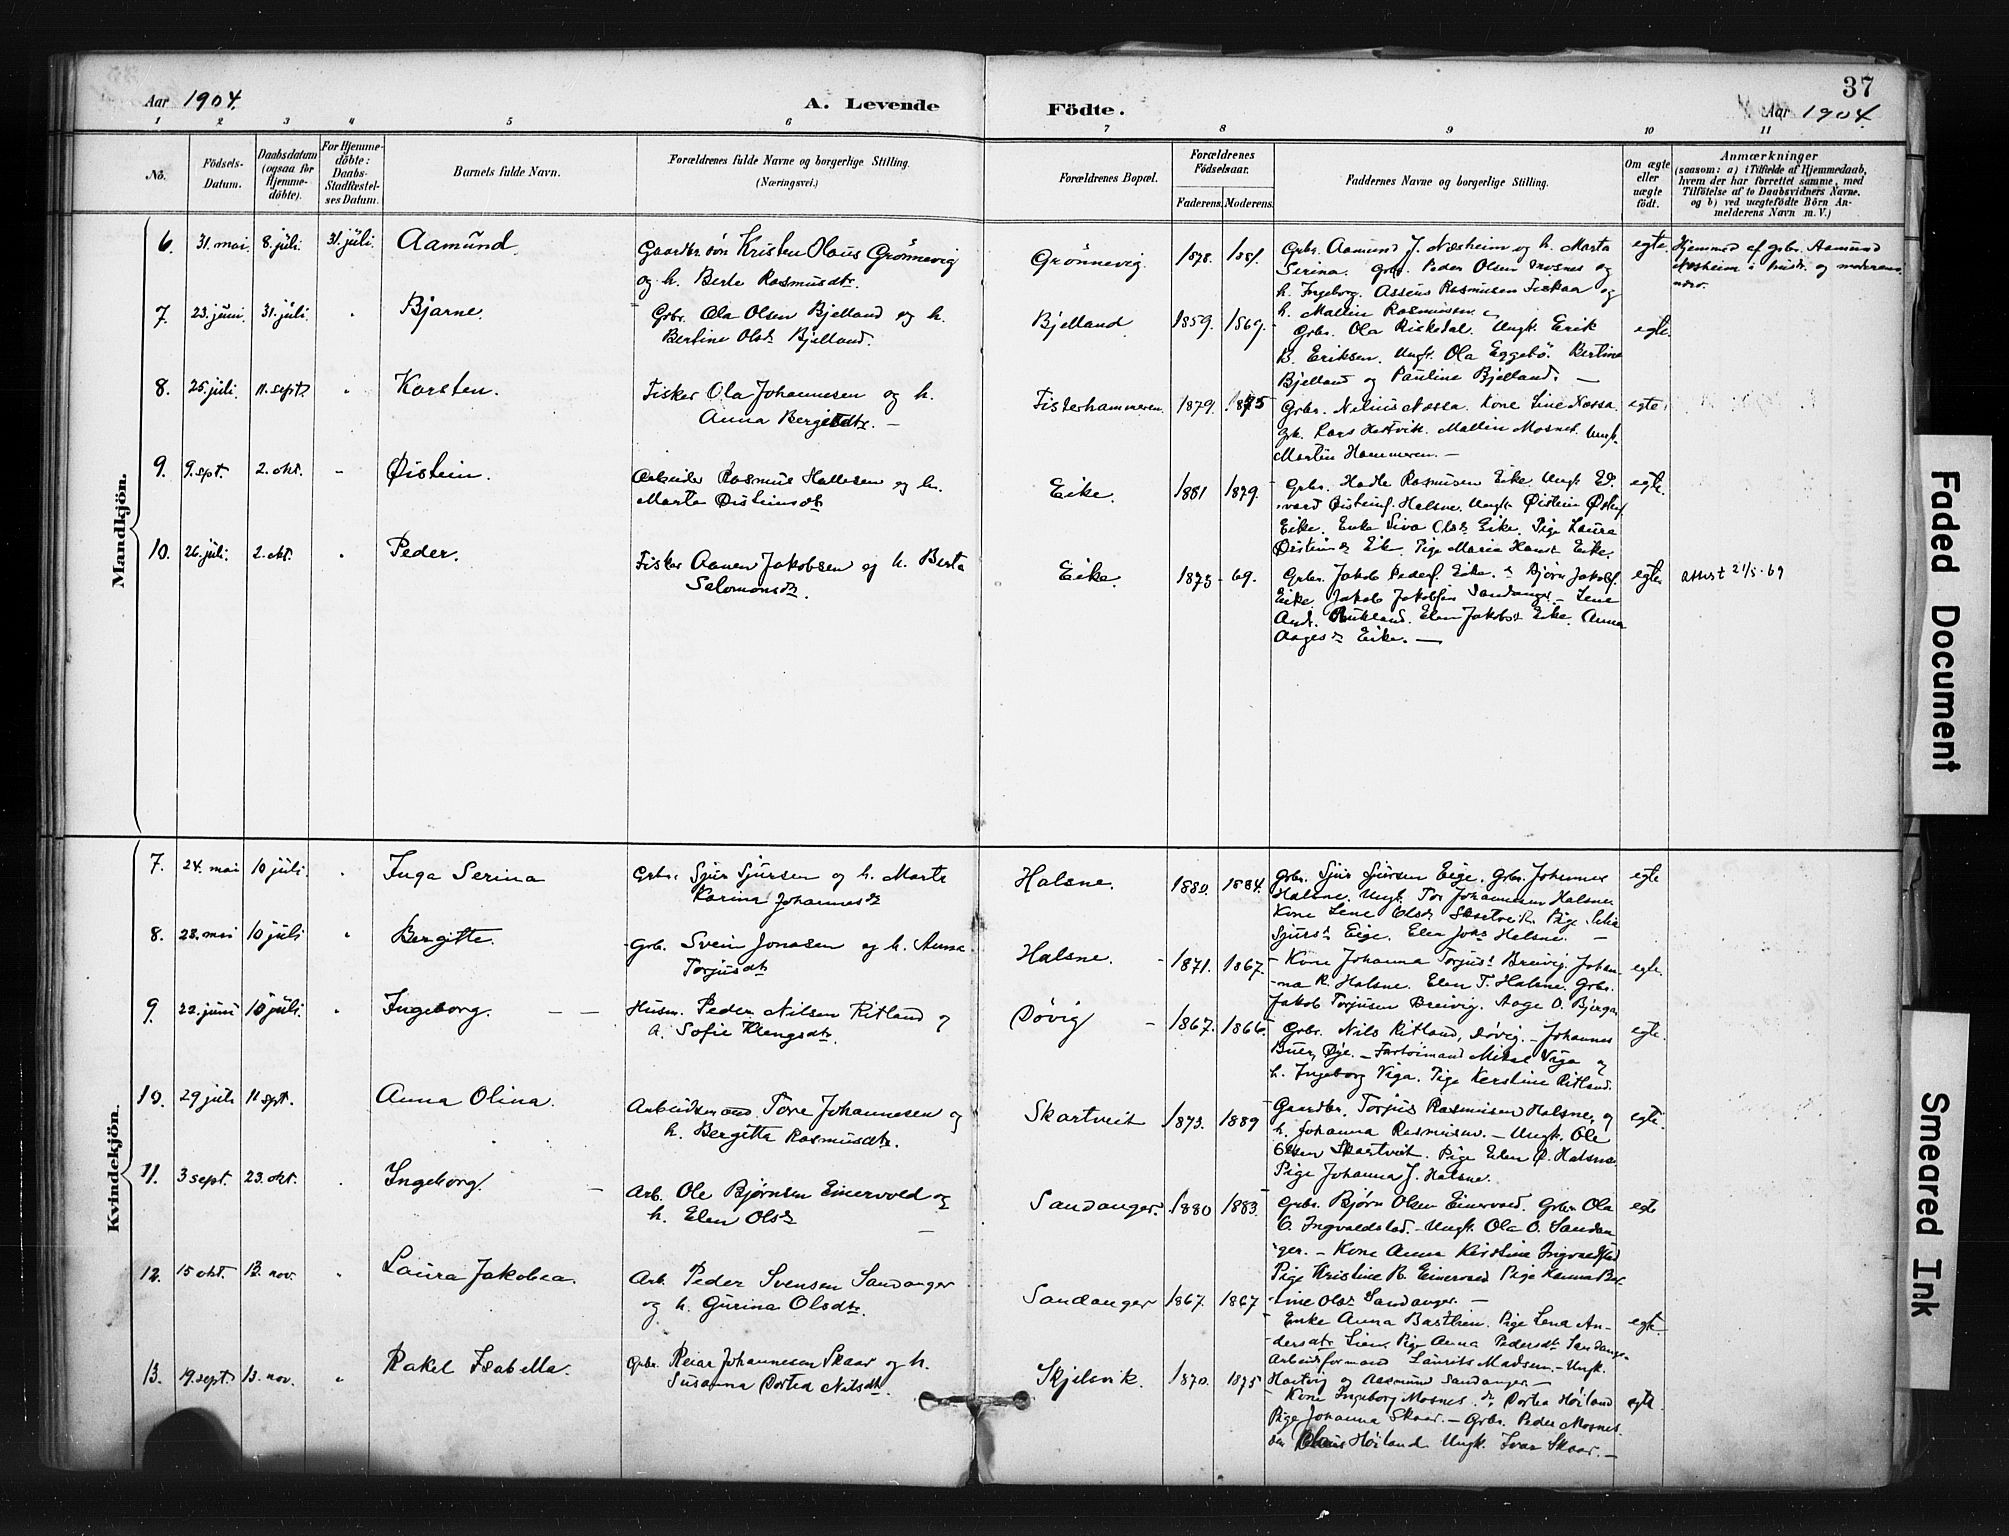 37
Aar 1904.
A. Levende
Födte.
Aar 1904.
1 2 3 4 5 6 7 8 9 10 11
No.
Födsels-Datum.
Daabsdatum (ogsaa for Hjemme-döbte).
For Hjemme-döbte: Daabs-Stadfæstel-ses Datum.
Barnets fulde Navn.
Forældrenes fulde Navne og borgerlige Stilling.
(Næringsvei.)
Forældrenes Bopæl.
Forældrenes Födselsaar.
Faderens. Moderens.
Faddernes Navne og borgerlige Stilling.
Om ægte eller uægte födt.
Anmærkninger
(saasom: a) i Tilfælde af Hjemmedaab,
hvem der har forrettet samme, med
Tilföielse af to Daabsvidners Navne,
og b) ved uægtefödte Börn An-
melderens Navn m. V.)
Mandkjön.
6. 31. mai. 8. juli. 31. juli. Aamund.
Gaardbr. søn Kristen Olaus Grönnevig
og h. Berte Rasmusdtr.
Grönnevig. 1878. 1881.
Grbr. Aamund J. Næsheim og h. Marta
Serina. Grbr. Peder Olsen og
h. Ingeborg. Asseus Rasmusen Fiskaa og
h. Mallin Rasmusen.
egte.
Hjemmed. af grbr. Aamund
Næsheim i og moderens
nærv.
7. 23. juni. 31. juli. " Bjarne.
Grbr. Ola Olsen Bjelland og h.
Bertine Olsdr Bjelland.
Bjelland 1859. 1869.
Grbr. Ola Riskedal. Ungk. Erik
B. Eriksen. Ungk. Ola Eggebö. Bertine
Bjelland og Pauline Bjelland. —
egte.
8. 25. juli. 11. sept. " Karsten.
Fisker Ola Johannesen og h.
Anna Bergitdtr. —
Fisterhammeren. 1879. 1875
Grbr. Nilius Næssa. Kone Line Næssa.
Gk. Lars Hestvik. Mallin Mosnes. Ungk.
Martin Hammeren. —
egte.
9. 9. sept. 2. okt. – Øistein.
Arbeider Rasmus Hallesen og h.
Marta Øisteinsdtr
Eike. 1881 1879.
Grbr. Hadle Rasmusen Eike. Ungk. Ed-
vard Øisteins. Halsne. Ungk. Øistein Østeins.
Eike. Enke Siva Olsdr Eike. Pige Laura
Øisteinsdr Eike. Pige Maria Hansdr Eike.
egte.
10. 26. juli. 2. okt. " Peder.
Fisker Aanen Jakobsen og h. Berta
Salomonsdr.
Eike. 1873 - 69.
Grbr. Jakob Peders. Eike. Bjørn Jakobs.
Eike. Jakob Jakobsen Sandanger. – Lene
And. Aukland. Elen Jakobsdr Eike. Anna
Aagesdr Eike. —
egte
Attest 21/5-69
Kvindekjön.
7. 24. mai 10 juli. " Inga Serina
Grbr. Sjur Sjursen og h. Marta
Karina Johannesdr
Halsne. 1880. 1884.
Grbr. Sjur Sjursen Eige. Grbr. Johannes
Halsne. Ungk. Tor Johannesen Halsne.
Kone Lene Olsdr Skartveit. Pige
Sjursdr Eige. Elen Johsdr Halsne. —
egte
8. 28. mai 10 juli " Bergitte.
Grbr. Svein Jonasen og h. Anna
Torjusdtr
Halsne. 1871. 1867.
Kone Johanna Torjusdr Breivig. Johan-
na R. Halsne. Elen T. Halsne. Grbr.
Jakob Torjusen Breivig. Aage O. Bjerga.
egte.
9. 22. juni 10 juli. " Ingeborg. — —
Husm. Peder Nilsen Ritland og
h. Sofie Klengsdtr.
Døvig — 1867. 1866.
Grbr. Nils Ritland, Døvig. – Johannes
Buer, Øye. – Fartöimand Mikal Viga og
h. Ingeborg Viga. Pige Kerstine Ritland.
egte.
10. 29 juli 11 sept. Anna Olina.
Arbeidsmand Tore Johannesen og
h. Bergitta Rasmusdtr.
Skartveit 1873. 1889
Gaardbr. Torjus Rasmusen Halsne, og
h. Johanna Rasmusen. – Ungk. Ole
Olsen Skartveit. Pige Elen O. Halsne.
Pige Johanna J. Halsne.
egte.
11. 3 sept. 23. okt. " Ingeborg. —
Arb. Ole Bjørnsen Einervold og
h. Elen Olsdr —
Sandanger. 1880 1883.
Grbr. Bjørn Olsen Einervold. Grbr. Ola
O. Ingvaldstad. – Ungk. Ola O. Sandan-
ger. – Kone Anna Kirstine Ingvaldstad
Pige Kristine B. Einervold Pige Hanna Ber-
tine Olsdr Sandanger. —
egte
12. 15 okt. 13. nov. " Laura Jakobea.
Arb. Peder Svensen Sandanger
og h. Gurina Olsdtr.
Sandanger 1867. 1867
Enke Anna Basthien. Pige Lena An-
dersdtr Lien. Pige Anna Pedersdtr Sandanger.
Arbeidsformand Laurits Madsen. – Ungk.
Hartvig og Aasmund Sandanger. —
egte.
13. 19. sept. 13. nov. " Rakel Isabella.
Grbr. Reiar Johannesen Skaar og h.
Susanna Dortea Nilsdtr.
Skjelsvik. 1870. 1875
Kone Ingeborg Mosnes. Dortea Höiland
Pige Johanna Skaar. – Grbr. Peder Mosnes.
Höiland Ungk. Ivar Skaar. —
egte.
Faded Document
Smeared Ink